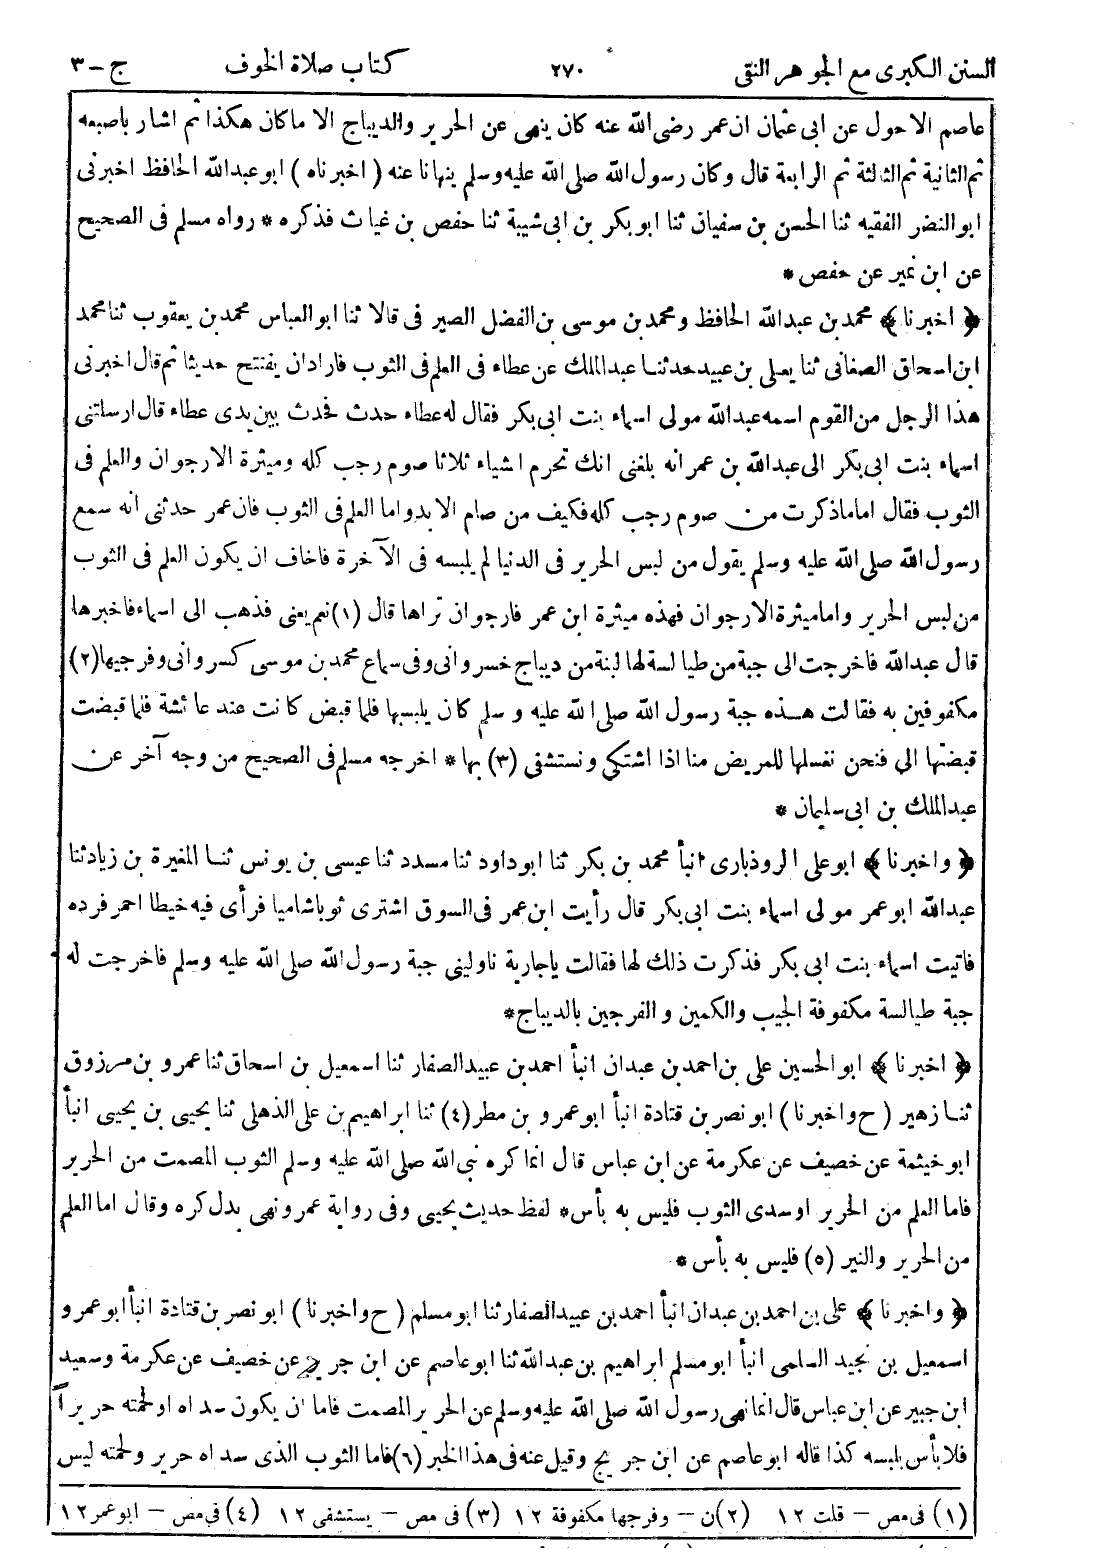 السنن الكبرى مع الجوهر النقى ٢٧٠ كتاب صلاة الخوف ج – ٣
عاصم الاحول عن ابى عثمان ان عمر رضى الله عنه كان ينهى عن الحرير والديباج الا ما كان هكذا ثم اشار باصبعه
ثم الثانية ثم الثالثة ثم الرابعة قال وكان رسول الله صلى الله عليه وسلم ينهانا عنه ( اخبرناه ) ابو عبدالله الحافظ اخبرنى
ابو النضر الفقيه ثنا الحسن بن سفيان ثنا ابو بكر بن ابى شيبة ثنا حفص بن غياث فذكره * رواه مسلم فى الصحيح
عن ابن نمير عن حفص *
﴿ اخبرنا ﴾ محمد بن عبدالله الحافظ ومحمد بن موسى بن الفضل الصير فى قالا ثنا ابو العباس محمد بن يعقوب ثنا محمد
ابن اسحاق الصغانى ثنا يعلى بن عبيد حدثنا عبدالملك عن عطاء فى العلم فى الثوب فاراد ان يفتتح حديثا ثم قال اخبرنى
هذا الرجل من القوم اسمه عبدالله مولى اسماء بنت ابى بكر فقال له عطاء حدث فحدث بين يدى عطاء قال ارسلتنى
اسماء بنت ابى بكر الى عبدالله بن عمر انه بلغنى انك تحرم اشياء ثلاثا صوم رجب كله وميثرة الارجوان والعلم فى
الثوب فقال اما ما ذكرت من صوم رجب كله فكيف من صام الابد واما العلم فى الثوب فان عمر حدثنى انه سمع
رسول الله صلى الله عليه وسلم يقول من لبس الحرير فى الدنيا لم يلبسه فى الآخرة فاخاف ان يكون العلم فى الثوب
من لبس الحرير واما ميثرة الارجوان فهذه ميثرة ابن عمر فارجوان تراها قال (١) نعم يعنى فذهب الى اسماء فاخبرها
قال عبدالله فاخرجت الى جبة من طيالسة لها لبنة من ديباج خسروانى وفى سماع محمد بن موسى كسروانى وفرجيها (٢)
مكفوفين به فقالت هذه جبة رسول الله صلى الله عليه وسلم كان يلبسها فلما قبض كانت عند عائشة فلما قبضت
قبضتها الى فنحن نغسلها للمريض منا اذا اشتكى ونستشفى (٣) بها * اخرجه مسلم فى الصحيح من وجه آخر عن
عبدالملك بن ابى سليمان *
﴿ واخبرنا ﴾ ابو على الروذبارى انبأ محمد بن بكر ثنا ابو داود ثنا مسدد ثنا عيسى بن يونس ثنا المغيرة بن زياد ثنا
عبدالله ابو عمر مولى اسماء بنت ابى بكر قال رأيت ابن عمر فى السوق اشترى ثوبا شاميا فرأى فيه خيطا احمر فرده
فاتيت اسماء بنت ابى بكر فذكرت ذلك لها فقالت ياجارية ناولينى جبة رسول الله صلى الله عليه وسلم فاخرجت له
جبة طيالسة مكفوفة الجيب والكمين والفرجين بالديباج *
﴿ اخبرنا ﴾ ابو الحسين على بن احمد بن عبدان انبأ احمد بن عبيد الصفار ثنا اسمعيل بن اسحاق ثنا عمرو بن مرزوق
ثنا زهير ( ح واخبرنا ) ابو نصر بن قتادة انبأ ابو عمرو بن مطر (٤) ثنا ابراهيم بن على الذهلى ثنا يحيى بن يحيى انبأ
ابو خيثمة عن خصيف عن عكرمة عن ابن عباس قال انما كره نبى الله صلى الله عليه وسلم الثوب المصمت من الحرير
فاما العلم من الحرير او سدى الثوب فليس به بأس * لفظ حديث يحيى وفى رواية عمرو نهى بدل كره وقال اما العلم
من الحرير والنير (٥) فليس به بأس *
﴿ واخبرنا ﴾ على بن احمد بن عبدان انبأ احمد بن عبيد الصفار ثنا ابو مسلم ( ح واخبرنا ) ابو نصر بن قتادة انبأ ابو عمرو
اسمعيل بن نجيد السلمى انبأ ابو مسلم ابراهيم بن عبدالله ثنا ابو عاصم عن ابن جريج عن خصيف عن عكرمة وسعيد
ابن جبير عن ابن عباس قال انما نهى رسول الله صلى الله عليه وسلم عن الحرير المصمت فاما ان يكون سداه او لحمته حريرآ
فلا بأس بلبسه كذا قاله ابو عاصم عن ابن جريج وقيل عنه فى هذا الخبر (٦) فاما الثوب الذى سداه حرير ولحمته ليس
(١) فى مص – قلت ١٢ (٢) ن – وفرجها مكفوفة ١٢ (٣) فى مص – يستشفى ١٢ (٤) فى مص – ابو عمر ١٢